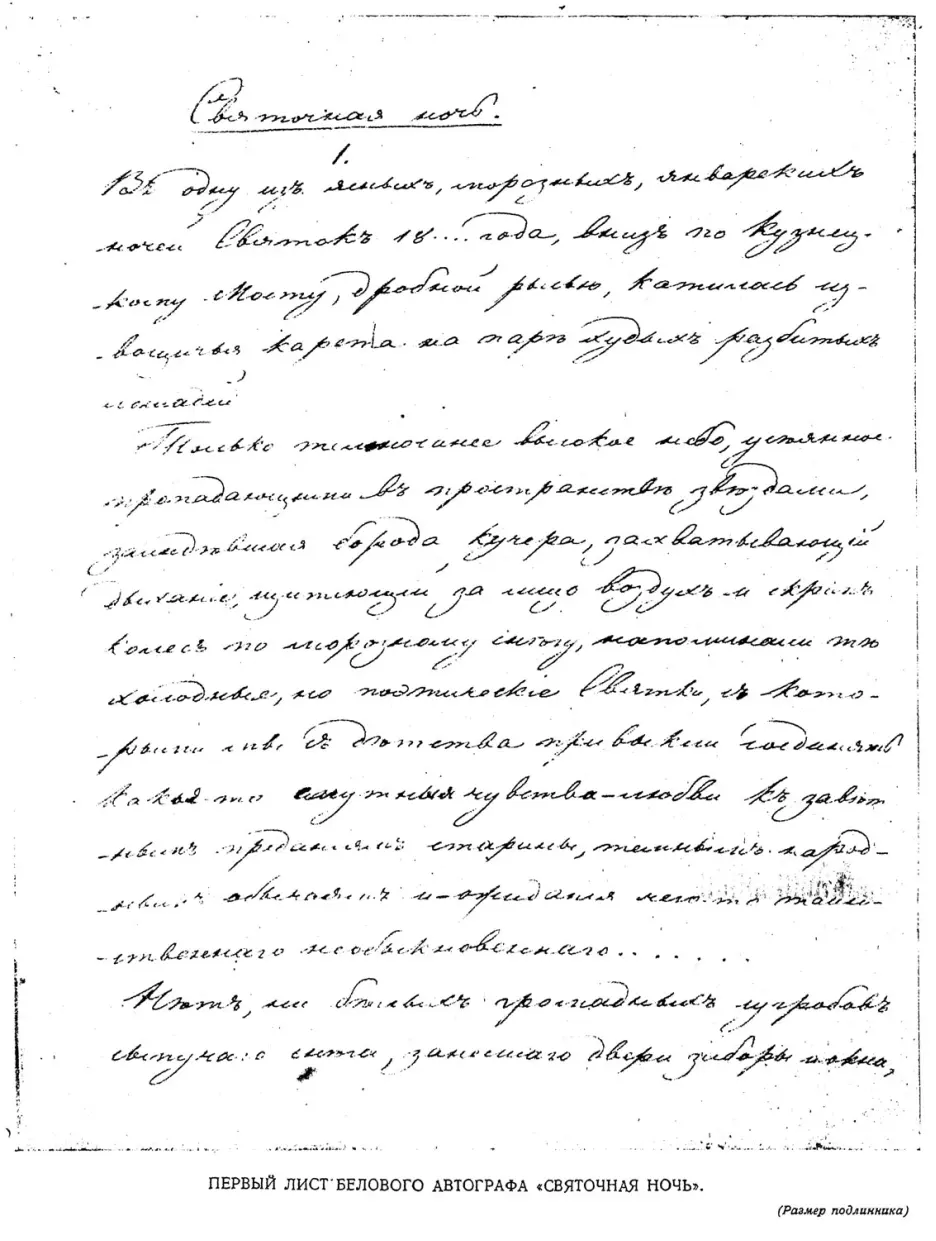 Святочная ночь.
1.
Въ одну изъ ясныхъ, морозныхъ, январскихъ
ночей Святокъ 18.... года, внизъ по Кузнец-
-кому Мосту, дробной рысью, катилась из-
-вощичья карета на парѣ худыхъ разбитыхъ
лошадей
Только темносинее высокое небо, усѣянное
пропадающими въ пространствѣ звѣздами,
заиндѣвшая борода кучера, захватывающій
дыханіе, щиплющій за лицо воздухъ и скрипъ
колесъ по морозному снѣгу, напоминали тѣ
холодные, но поэтическіе Святки, съ кото-
-рыми мы съ дѣтства привыкли соединять
какія-то смутныя чувства–любви къ завѣт
-нымъ преданіямъ старины, темнымъ народ-
-нымъ обычаямъ и–ожиданія чего-то таин-
-ственнаго необыкновеннаго.......
Нѣтъ, ни бѣлыхъ громадныхъ сугробовъ
сыпучаго снѣга, занесшаго двери заборы и окна,
ПЕРВЫЙ ЛИСТ БЕЛОВОГО АВТОГРАФА «СВЯТОЧНАЯ НОЧЬ».
(Размер подлинника)